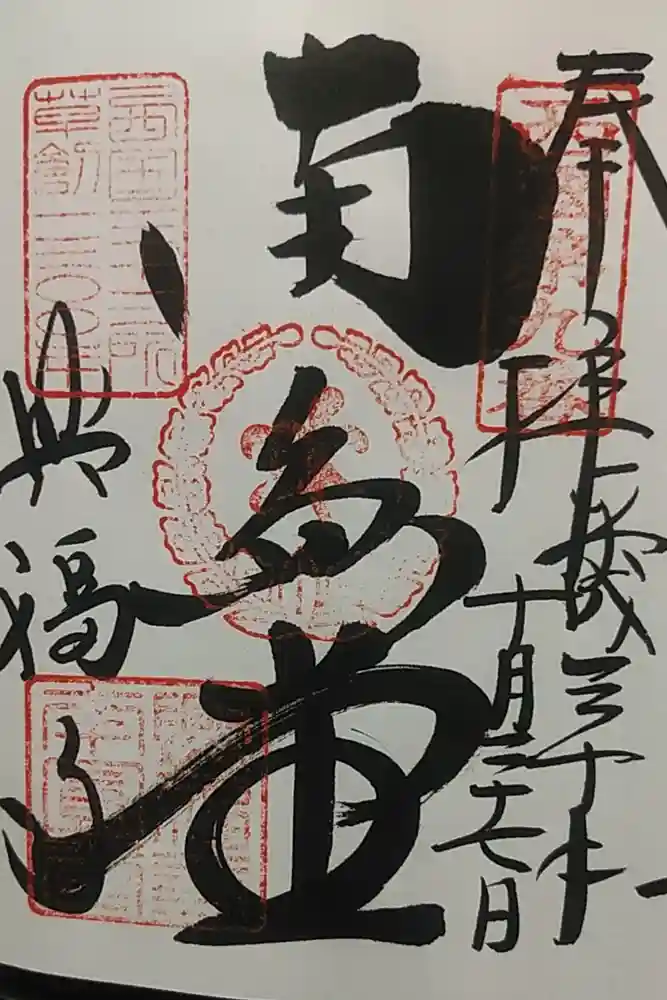 奉拝
平成三十年
十月二十七日
南円堂
興福寺
西国第九番
西国三十三所
草創一三〇〇年